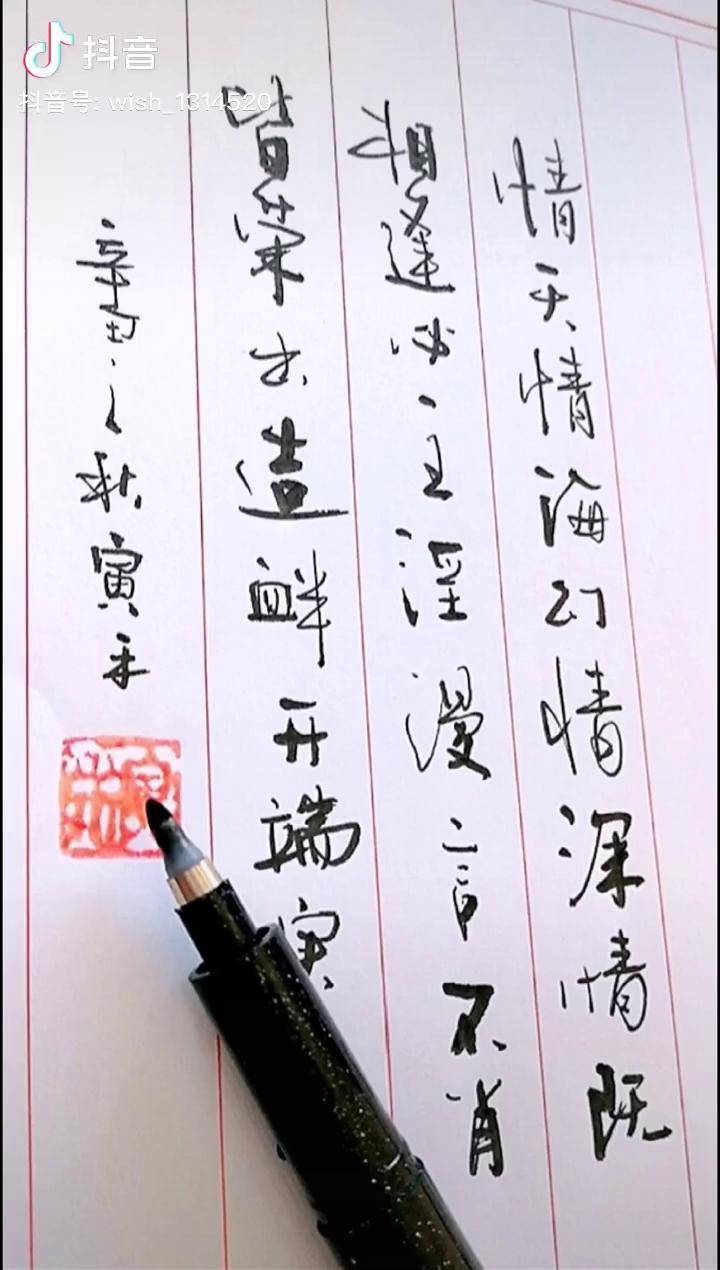 抖音
抖音号: wish_1314520
情天情海幻情深情既
相逢必主淫漫言不肖
皆荣出造衅开端实
辛丑之秋寅